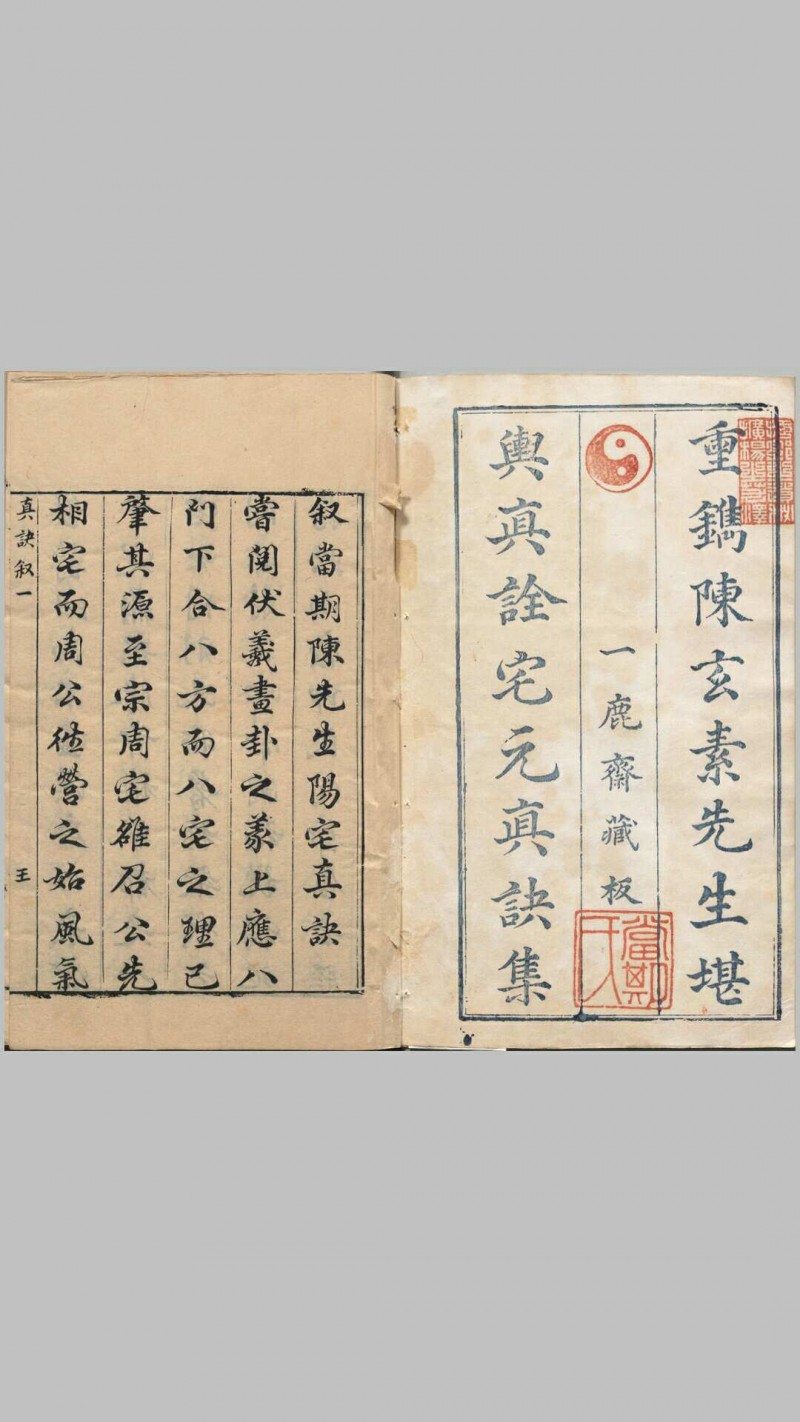 重鐫陳玄素先生堪
一鹿齋藏板
輿眞詮宅元眞訣集
當期
氏人
叙當期陳先生陽宅真訣
嘗閱伏羲畫卦之彖上應八
門下合八方而八宅之理已
肇其源至宗周宅雒召公先
相宅而周公徃營之始風氣
真訣叙一
王